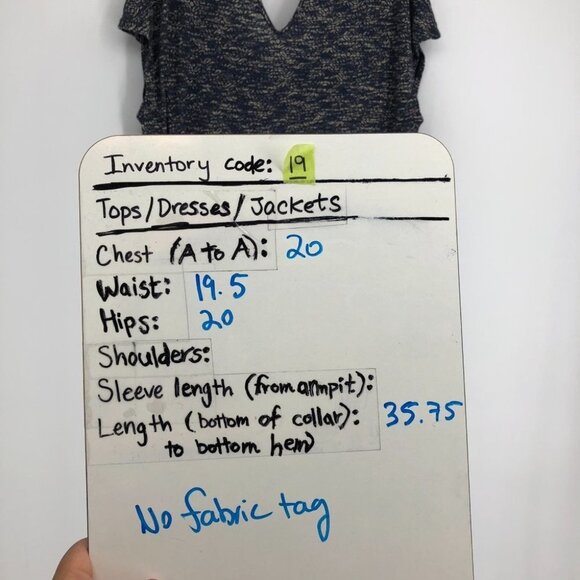 Inventory code: 19
Tops/Dresses/Jackets
Chest (A to A): 20
Waist: 19.5
Hips: 20
Shoulders:
Sleeve length (from armpit):
Length (bottom of collar): 35.75
to bottom hem)
No fabric tag